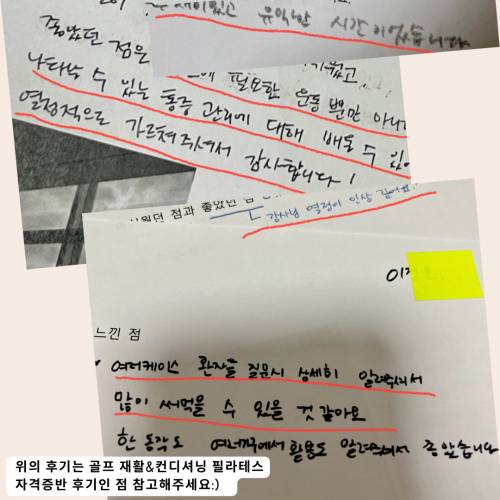 재미있고 유익한 시간이었습니다
좋았던 점은
필요한 운동 뿐만 아니라
나타날 수 있는 통증 관리에 대해 배울 수 있
열정적으로 가르쳐주셔서 감사합니다!
점과 좋았던 점
강사님 열정이 인상 깊어요.
이
느낀 점
여러케이스 환자들 질문시 상세히 알려주셔서
많이 써먹을 수 있을 것 같아요
한 동작도 여러쪽에서 활용도 알려주셔서 좋았습니다
위의 후기는 골프 재활&컨디셔닝 필라테스
자격증반 후기인 점 참고해주세요:)